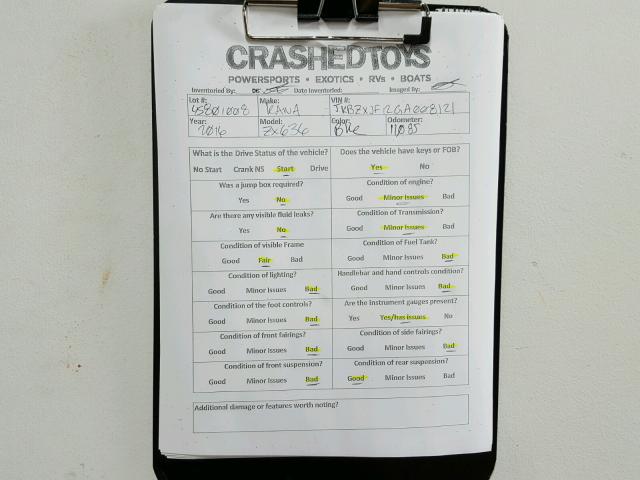 CRASHEDTOYS
POWERSPORTS • EXOTICS • RVs • BOATS
Inventoried By: Date Inventoried: Imaged By:
Lot #: 45801008 Make: KAWA VIN #: JKBZXJF12GA008121
Year: 2016 Model: ZX636 Color: Odometer: 11085
What is the Drive Status of the vehicle? Does the vehicle have keys or FOB?
No Start Crank NS Start Drive Yes No
Was a jump box required? Condition of engine?
Yes No Good Minor Issues Bad
Are there any visible fluid leaks? Condition of Transmission?
Yes No Good Minor Issues Bad
Condition of visible Frame Condition of Fuel Tank?
Good Fair Bad Good Minor Issues Bad
Condition of lighting? Handlebar and hand controls condition?
Good Minor Issues Bad Good Minor Issues Bad
Condition of the foot controls? Are the instrument gauges present?
Good Minor Issues Bad Yes Yes/has issues No
Condition of front fairings? Condition of side fairings?
Good Minor Issues Bad Good Minor Issues Bad
Condition of front suspension? Condition of rear suspension?
Good Minor Issues Bad Good Minor Issues Bad
Additional damage or features worth noting?